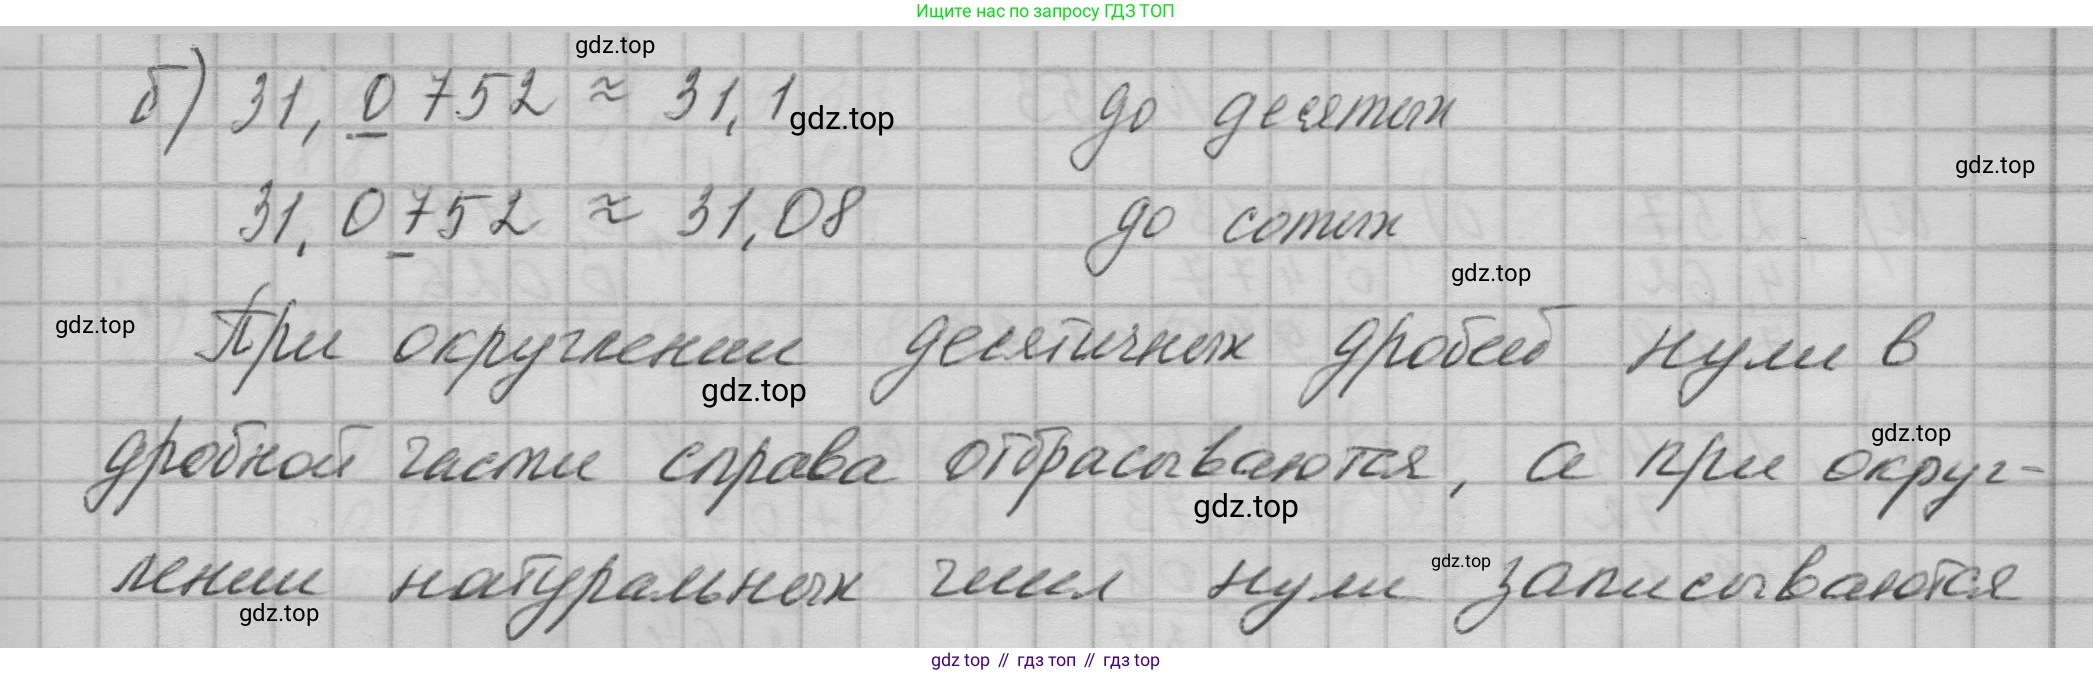 Ищите нас по запросу ГДЗ ТОП
gdz.top
б) 31,0752 ≈ 31,1 до десятых
gdz.top
gdz.top
31,0752 ≈ 31,08 до сотых
gdz.top
gdz.top
При округлении десятичных дробей нули в
gdz.top
gdz.top
дробной части справа отбрасываются, а при округ-
gdz.top
gdz.top
лении натуральных чисел нули записываются
gdz.top
gdz top // гдз топ // гдз top